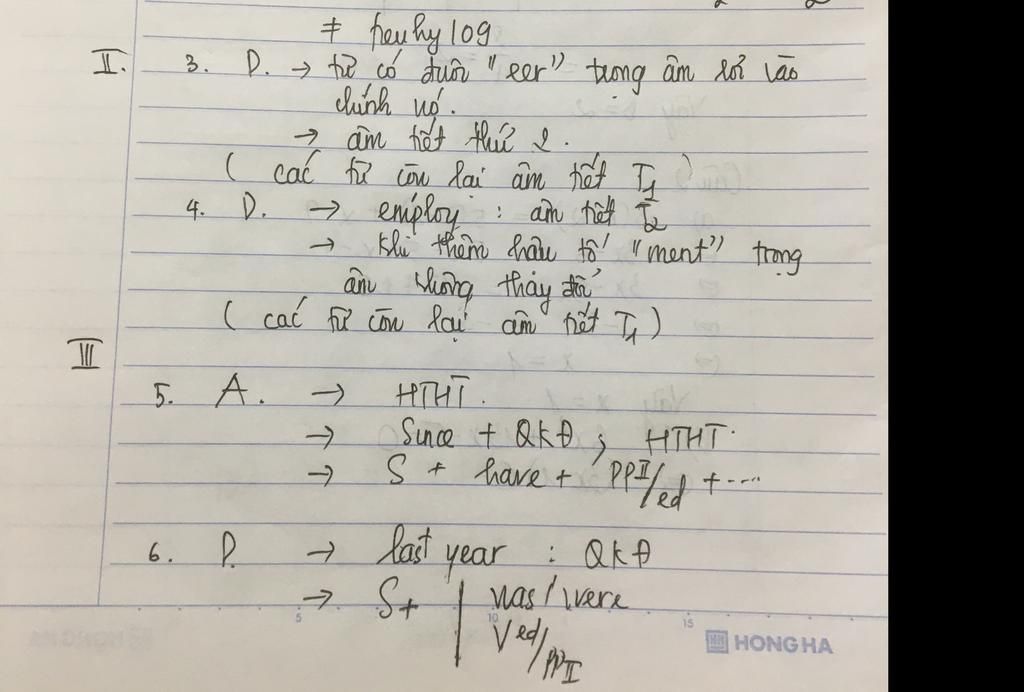 II. 3. D. → từ có đuôi "eer" trọng âm rơi vào
chính nó.
→ âm tiết thứ 2.
( các từ còn lại âm tiết T1 )
4. D. → employ : âm tiết T2
→ khi thêm hậu tố "ment" trọng
âm không thay đổi
( các từ còn lại âm tiết T1 )
III
5. A. → HTHT.
→ Since + QKĐ ; HTHT.
→ S + have + PPII/ed + ....
6. D. → last year : QKĐ
→ S + | was/were
Ved/PPII
5 10 15
HONG HA